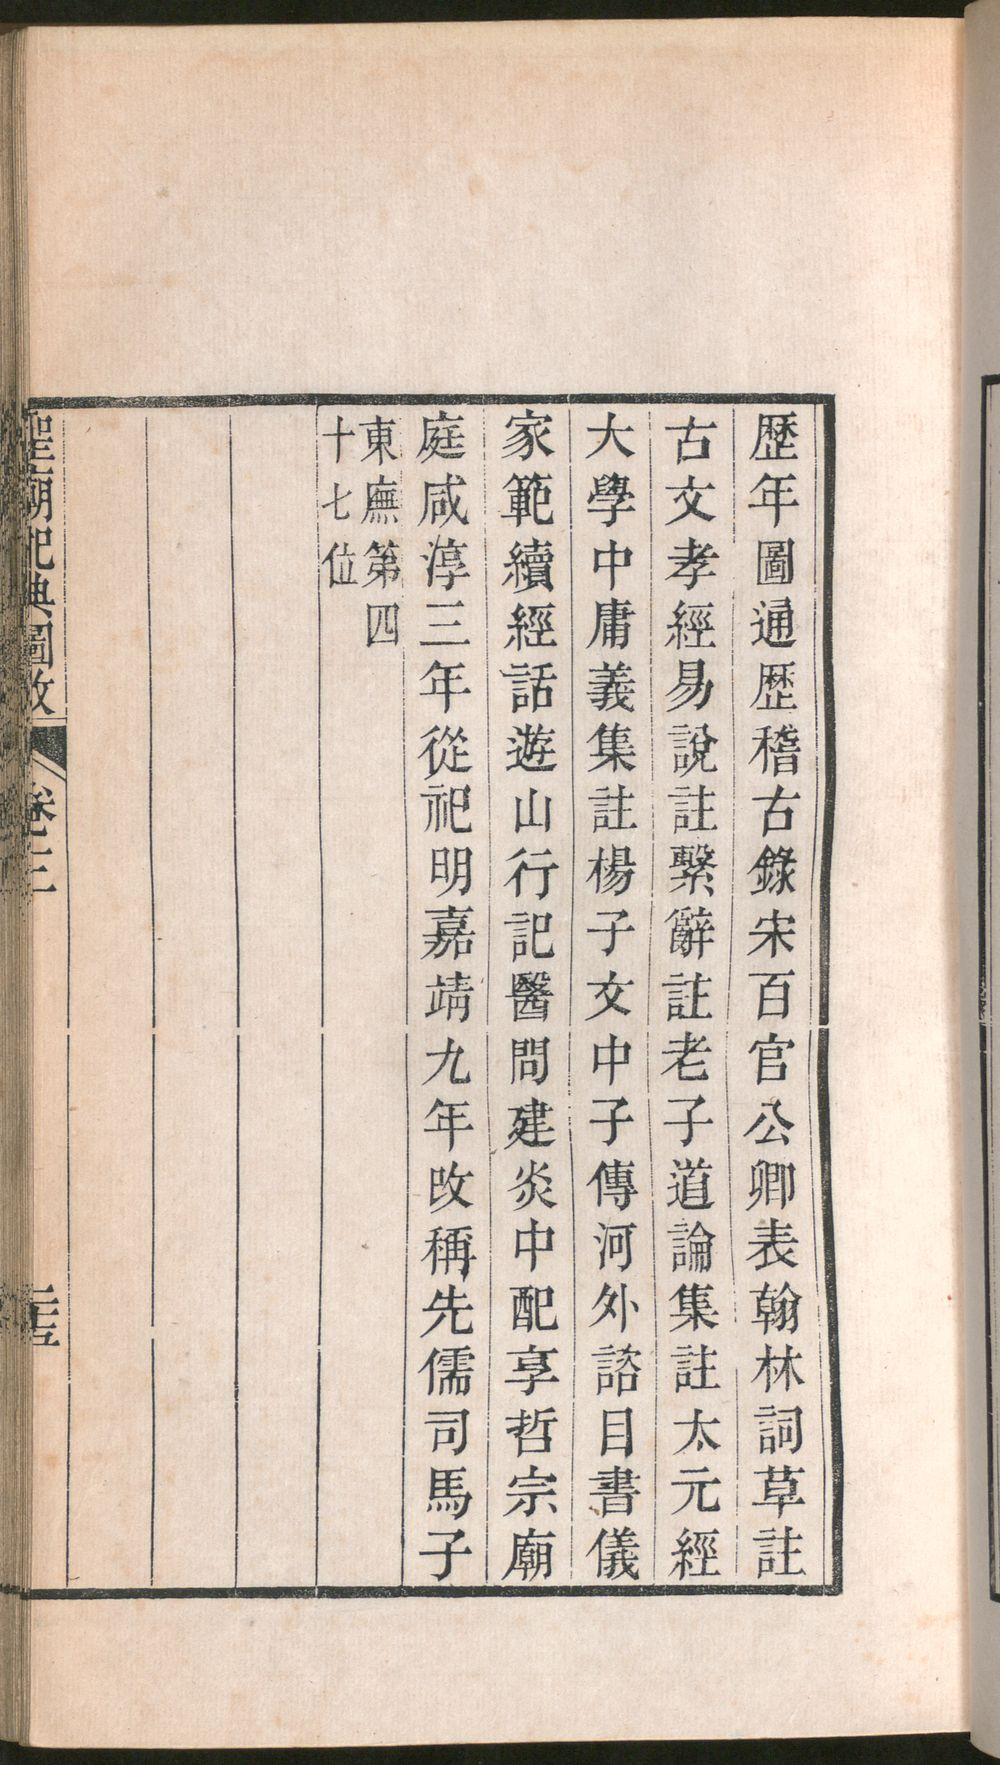 歷年圖通歷稽古錄宋百官公卿表翰林詞草註
古文孝經易說註繫辭註老子道論集註太元經
大學中庸義集註楊子文中子傳河外諮目書儀
家範續經話遊山行記醫問建炎中配享哲宗廟
庭咸淳三年從祀明嘉靖九年改稱先儒司馬子
東廡第四
十七位
聖廟祀典圖攷 卷三